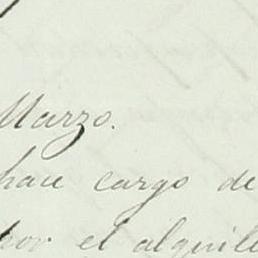 Marzo.
hace cargo de
por el alquile